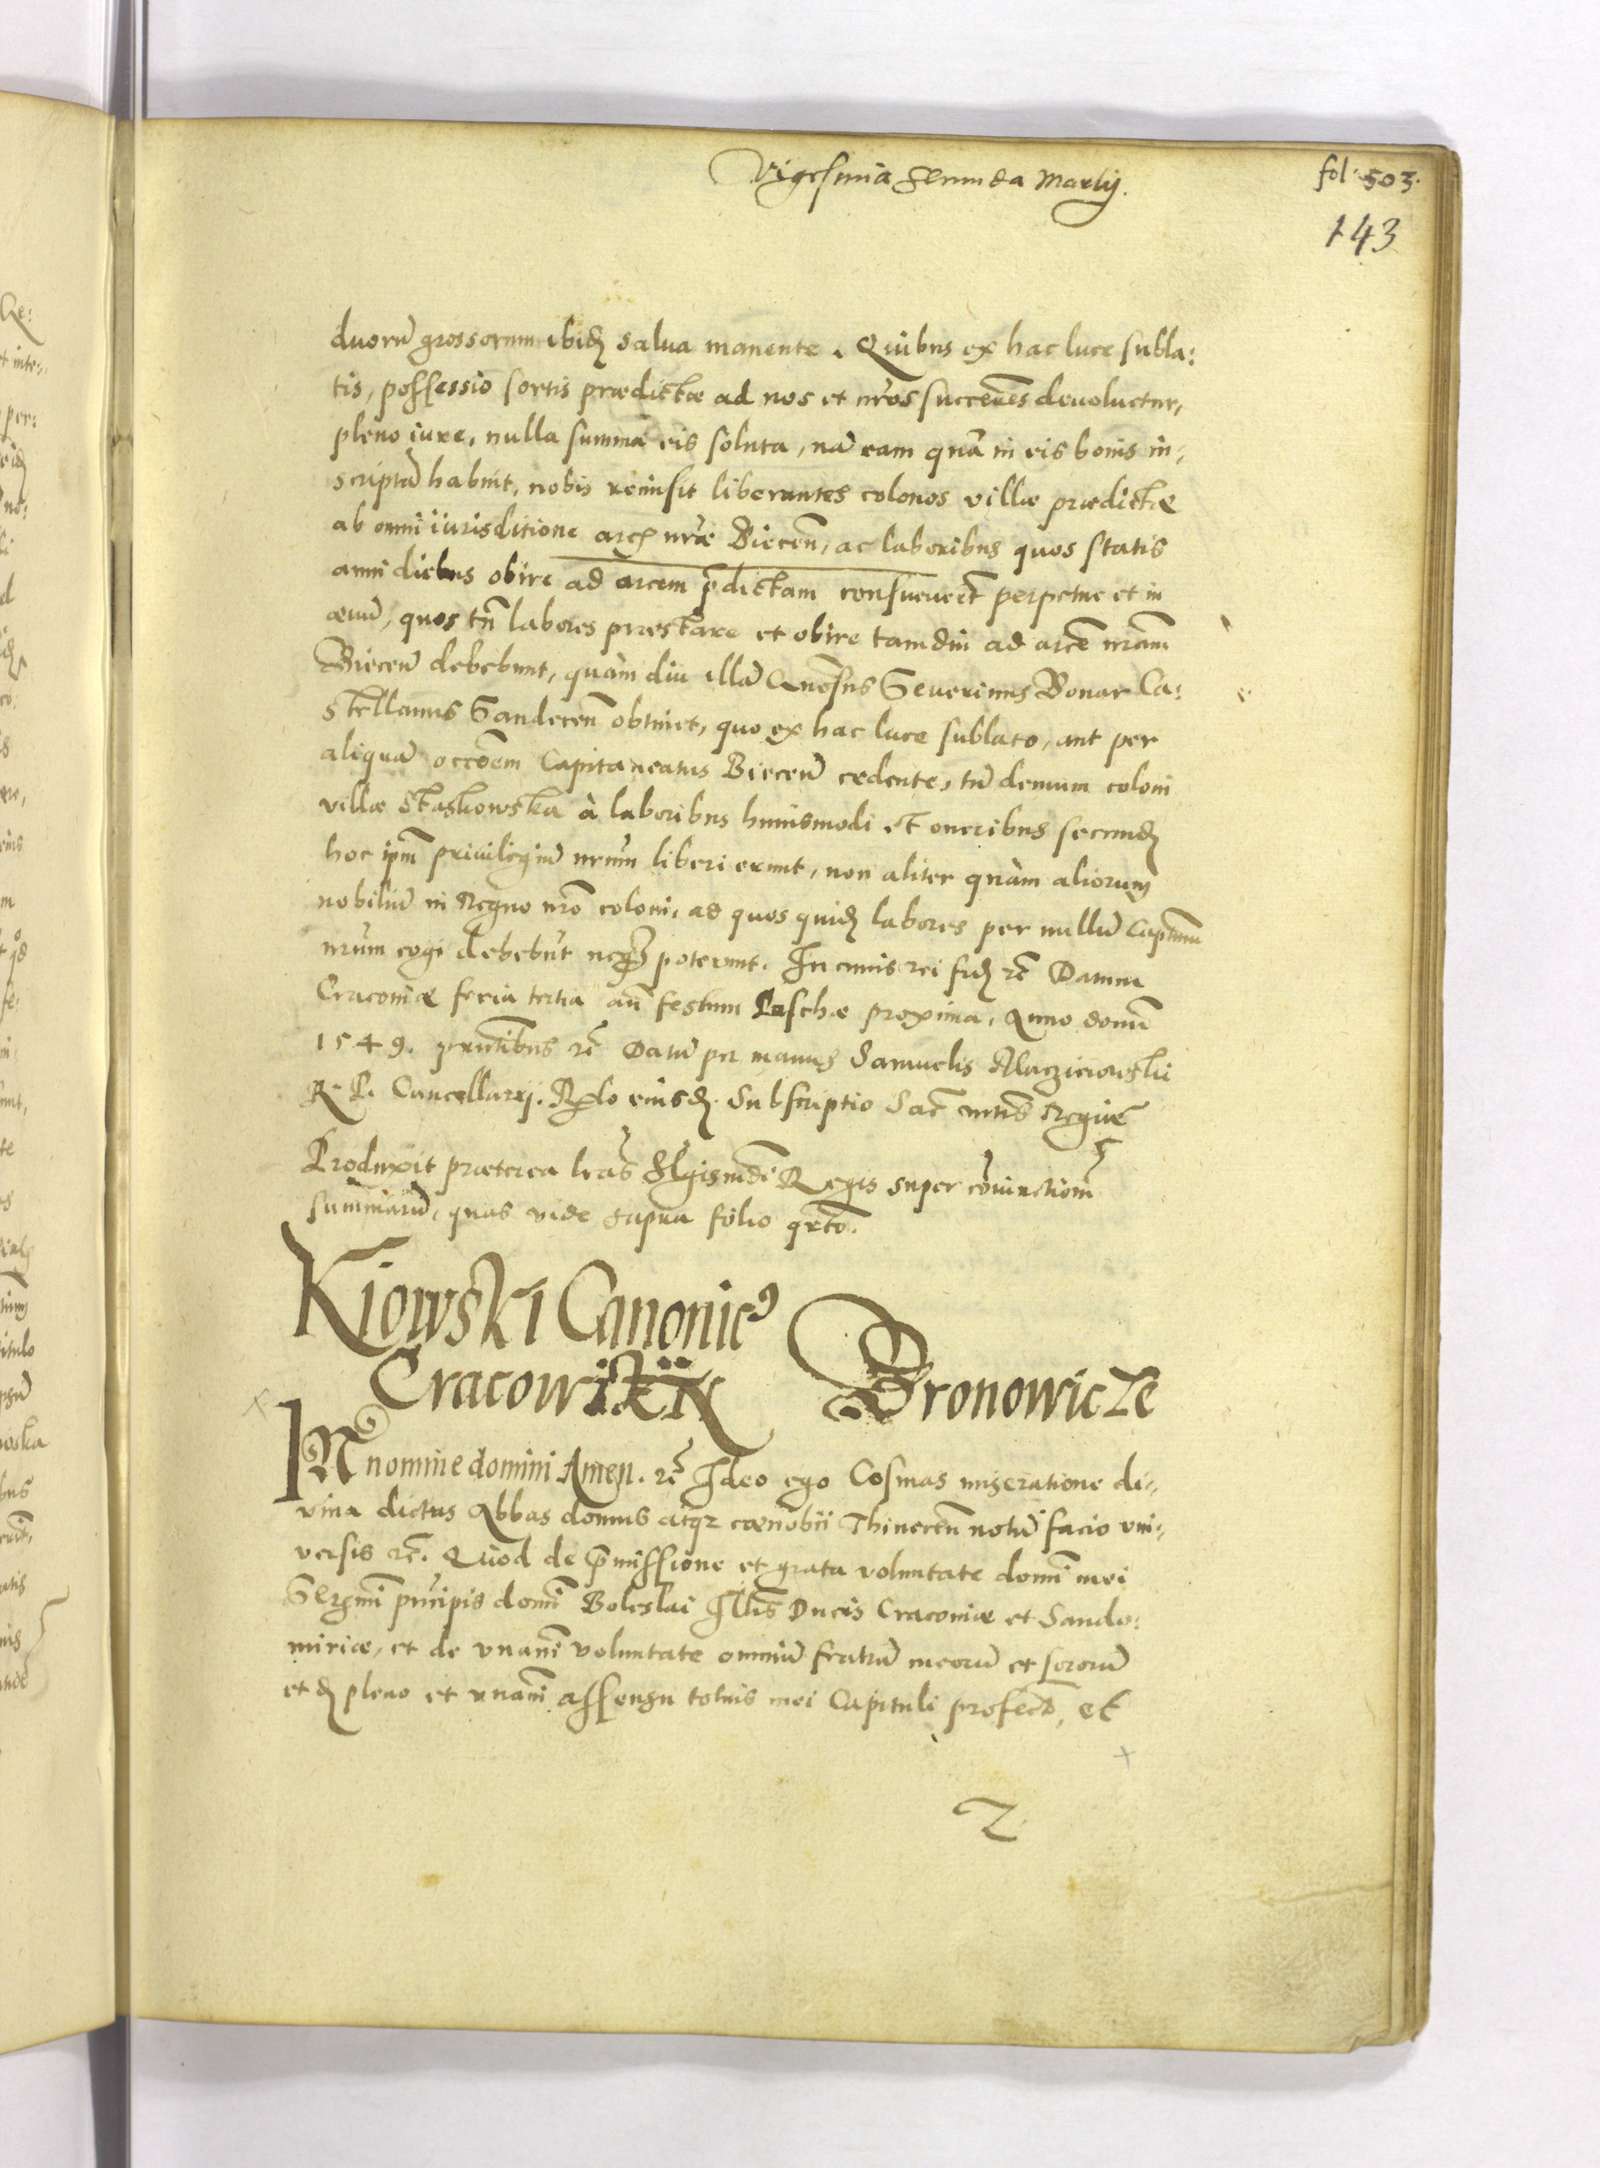 Vigesima secunda Martij.
fol. 503.
143
duorũ grossorum ibid. salua manente. Quibus ex hac luce subla:
tis, possessio sortis prædictæ ad nos et nr̃os succes̃es deuoluetur,
pleno iure, nulla summa eis soluta, nã eam quã in eis bonis in-
scriptã habuit, nobis remisit liberantes colonos villæ prædictæ
ab omni iurisditione arcis nr̃æ Biecen̄, ac laboribus quos statis
anni diebus obire ad arcem p̃dictam consueuer̃t perpetue et in
æuũ, quos tñ labores præstare et obire tamdiu ad arcẽ nr̃am
Biecen̄ debebunt, quàm diu illã Gñosus Seuerinus Bonar Ca:
stellanus Sandecen̄ obtinet, quo ex hac luce sublato, aut per
aliquã occõem Capitaneatus Biecen̄ cedente, tũ demum coloni
villæ Staskowska à laboribus huiusmodi et oneribus secund.
hoc ipm̃ priuilegiũ nr̃um liberi erunt, non aliter quàm aliorum
nobiliũ in Regno nr̃o coloni, ad quos quid. labores per nullũ Capтneum
nr̃um cogi debebũt neq; poterunt. In cuius rei fid. rc̃ Datum
Cracoviæ feria tertia añ festum Paschæ proxima, Anno domi
1549. pñtibus rc̃ Datũ per manus Samuelis Maczieiowski
R. P. Cancellarij. Rl̃o eiusd. Subscriptio Sac̃ mtis Regiæ
Produxit præterea lr̃as Sigismdi Regis super cõiunctiõm
summarũ, quas vide supra folio qr̃to.
Kiowski Canonic9
Cracowien
Bronowicze
IN nomine domini Amen. rc̃ Ideo ego Cosmas miseratione di-
uina dictus Abbas domus atq; cœnobii Thinecen̄ notũ facio vni-
versis rc̃. Quod de p̃missione et grata voluntate domi mei
Serẽmi principis domi Boleslai Illus Ducis Cracoviæ et Sando:
miriæ, et de vnanĩ voluntate omniũ fratrũ meorũ et sororũ
et d. pleno et vnanĩ assensu totius mei Capituli profect. et
2